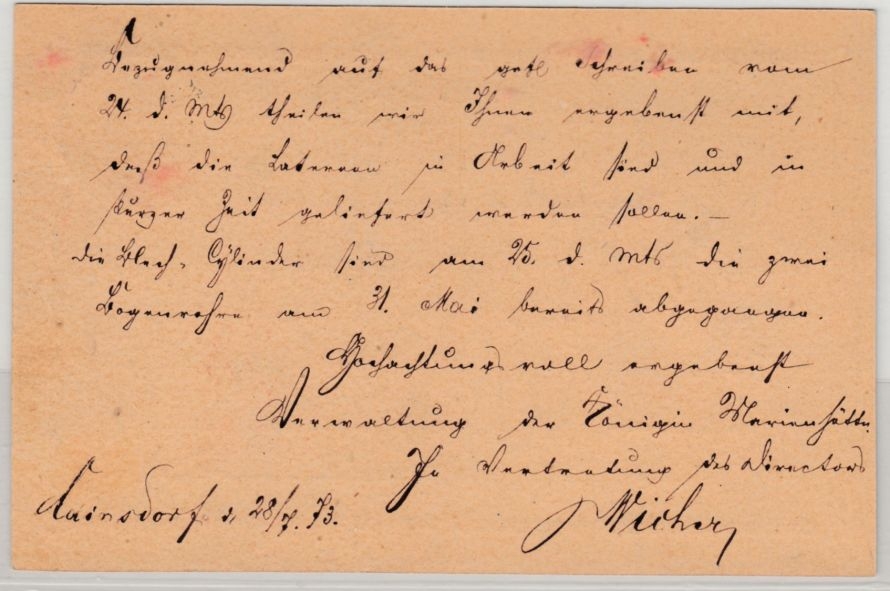 Bezugnehmend auf das gefl Schreiben vom
24. d. Mts theilen wir Ihnen ergebenst mit,
daß die Laternen in Arbeit sind und in
kurzer Zeit geliefert werden sollen. —
die Blech-Cylinder sind am 25. d. Mts die zwei
Bogenrohre am 31. Mai bereits abgegangen.
Hochachtungsvoll ergebenst
Verwaltung der Königin Marienhütte
In Vertretung des Directors
Cainsdorf d. 28/7. 73.